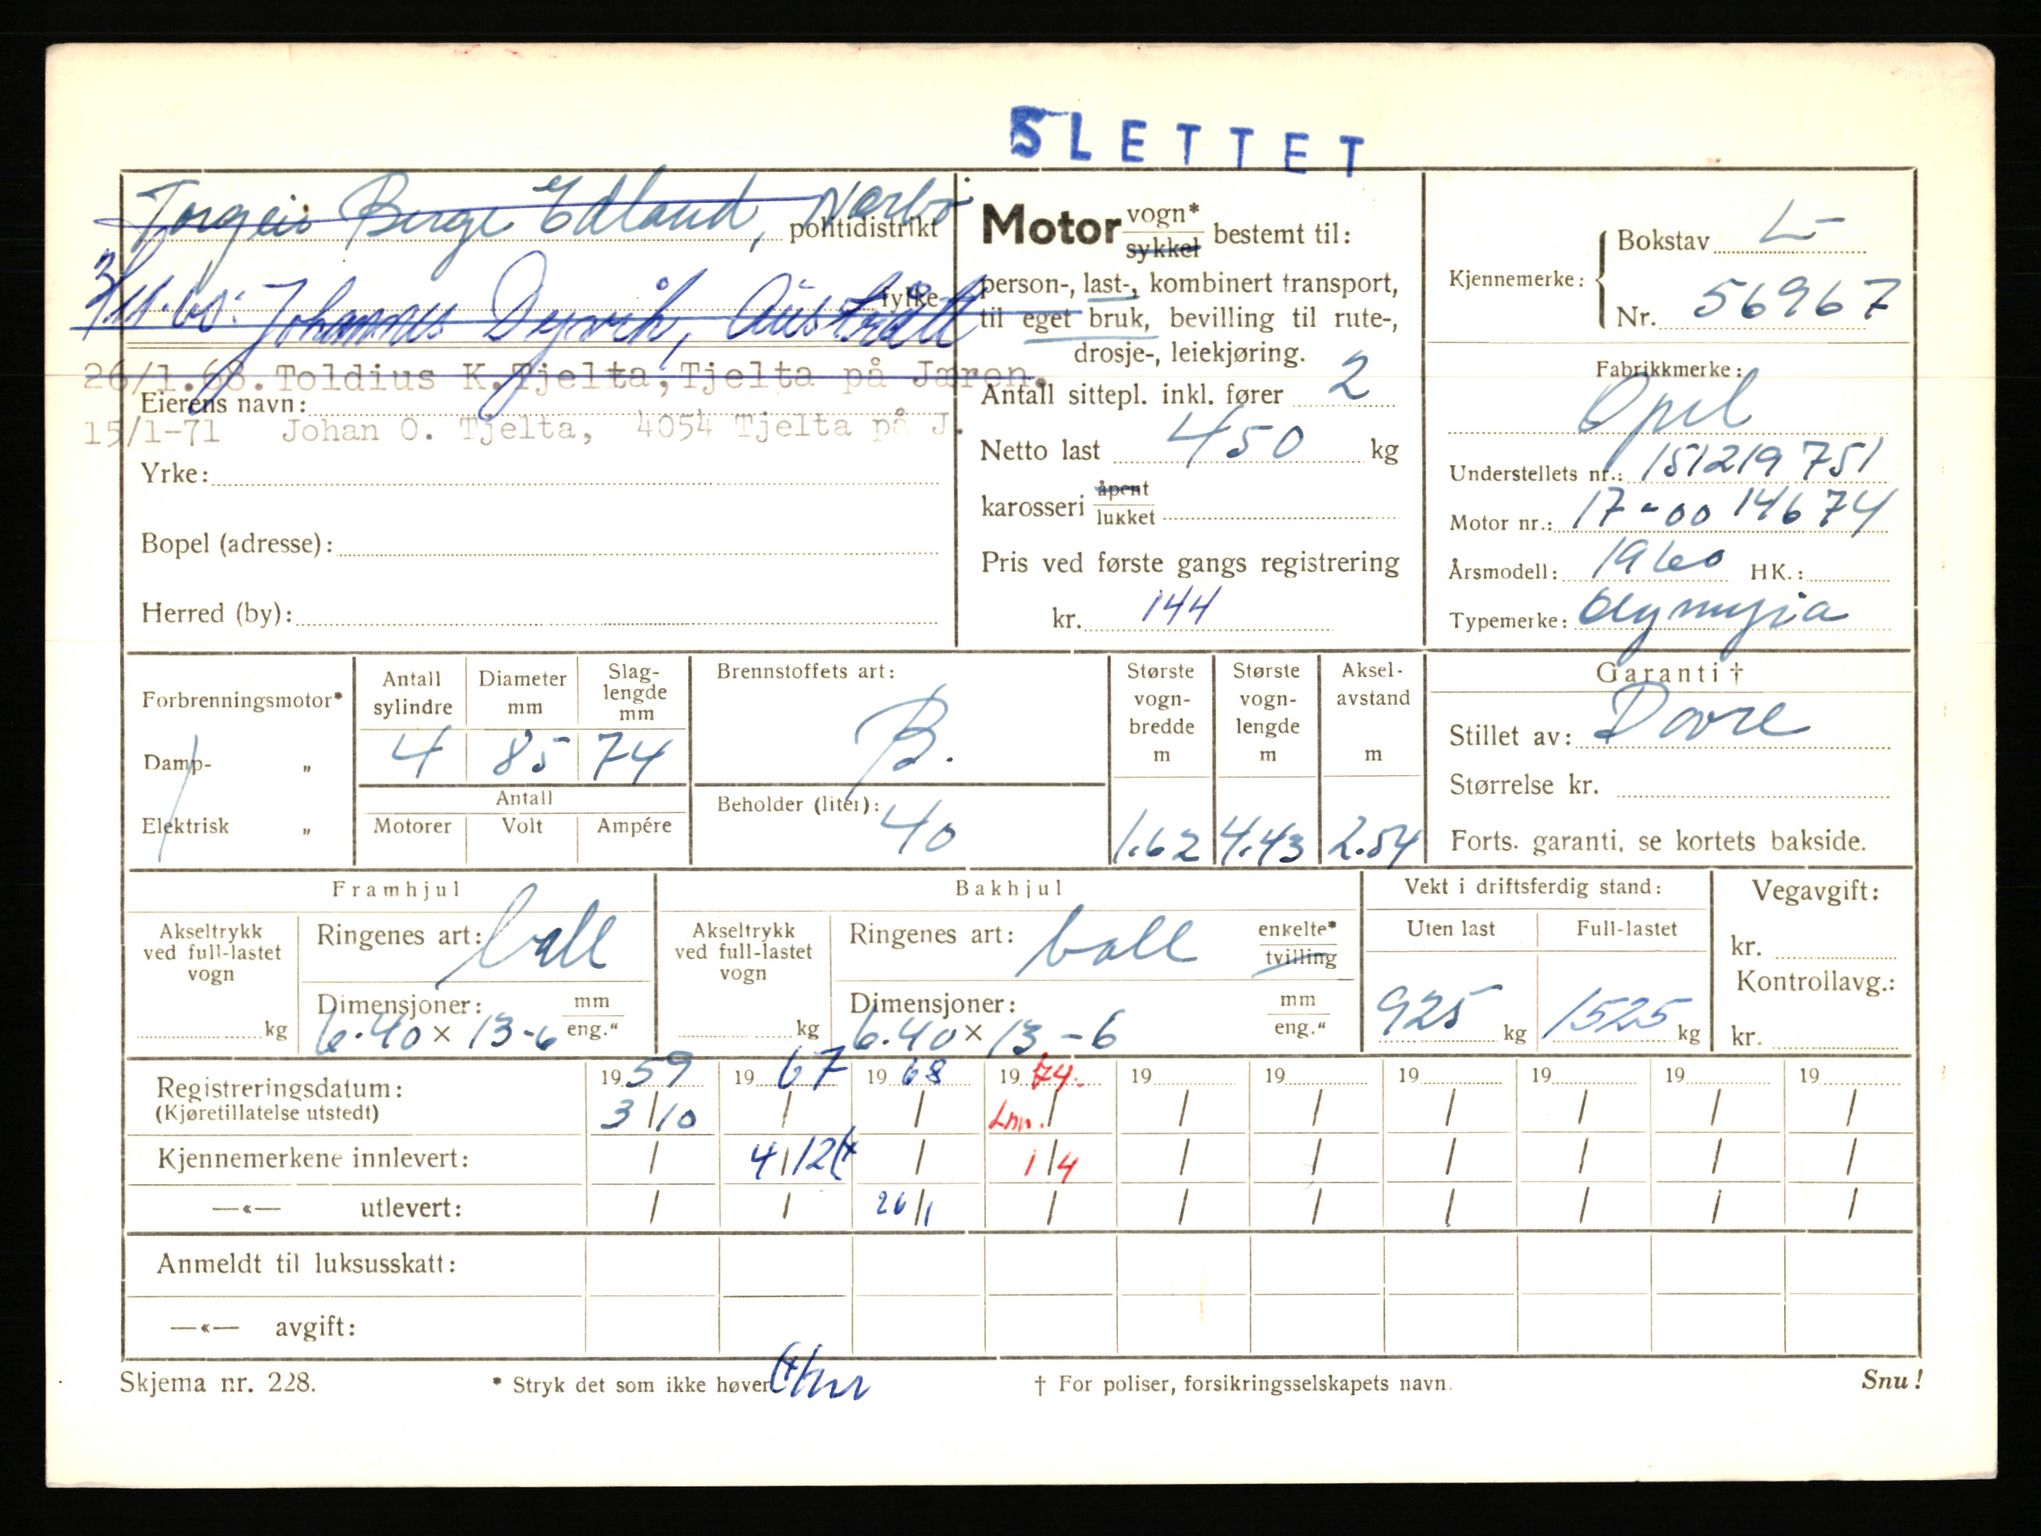 SLETTET
Torgeir Berge Edland, Nærbø
politidistrikt
3/11.60: Johannes Dysvik, Austrått
fylke
26/1.68. Toldius K.Tjelta, Tjelta på Jæren.
Eierens navn:
15/1-71 Johan O. Tjelta, 4054 Tjelta på J.
Yrke:
Bopel (adresse):
Herred (by):
Motor vogn* sykkel bestemt til:
person-, last-, kombinert transport,
til eget bruk, bevilling til rute-,
drosje-, leiekjøring.
Antall sittepl. inkl. fører 2
Netto last 450 kg
karosseri åpent lukket
Pris ved første gangs registrering
kr. 144
Kjennemerke: Bokstav L-
Nr. 56967
Fabrikkmerke:
Opel
Understellets nr.: 151219751
Motor nr.: 17-0014674
Årsmodell: 1960 HK.:
Typemerke: Olympia
Forbrenningsmotor*
Damp- „
Elektrisk „
Antall sylindre Diameter mm Slag-lengde mm
4 85 74
Antall
Motorer Volt Ampére
Brennstoffets art:
B.
Beholder (liter):
40
Største vogn-bredde m
1.62
Største vogn-lengde m
4.43
Aksel-avstand m
2.54
Garanti †
Stillet av: Dovre
Størrelse kr.
Forts. garanti, se kortets bakside.
Framhjul
Akseltrykk ved full-lastet vogn
kg
Ringenes art: ball
Dimensjoner: mm eng."
6.40 × 13-6
Bakhjul
Akseltrykk ved full-lastet vogn
kg
Ringenes art: ball enkelte* tvilling
Dimensjoner: mm eng."
6.40 × 13-6
Vekt i driftsferdig stand:
Uten last Full-lastet
925 kg 1525 kg
Vegavgift:
kr.
Kontrollavg.:
kr.
Registreringsdatum: 1959 1967 1968 1974. 19 19 19 19 19 19
(Kjøretillatelse utstedt) 3/10 / / / / / / / / /
Kjennemerkene innlevert: / 4/12 / 1/4 / / / / / /
—«— utlevert: / / 26/1 / / / / / / /
Anmeldt til luksusskatt:
—«— avgift:
Skjema nr. 228. * Stryk det som ikke høver † For poliser, forsikringsselskapets navn. Snu!